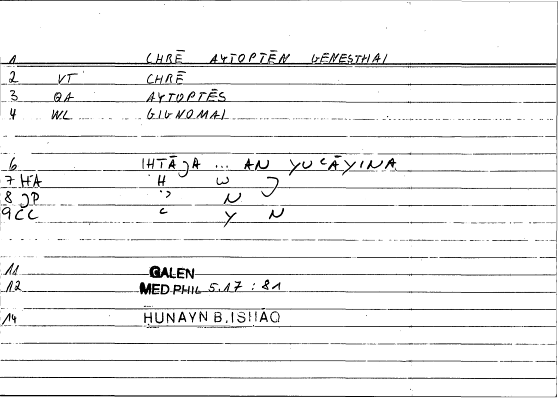 1 CHRĒ AYTOPTĒN GENESTHAI
2 VT CHRĒ
3 QA AYTOPTĒS
4 WL GIGNOMAI
6 IHTĀJA ... AN YUCĀYINA
7 HA H W J
8 JP N
9 CC C Y N
11 GALEN
12 MED PHIL 5.17 : 81
14 HUNAYN B. ISHAQ